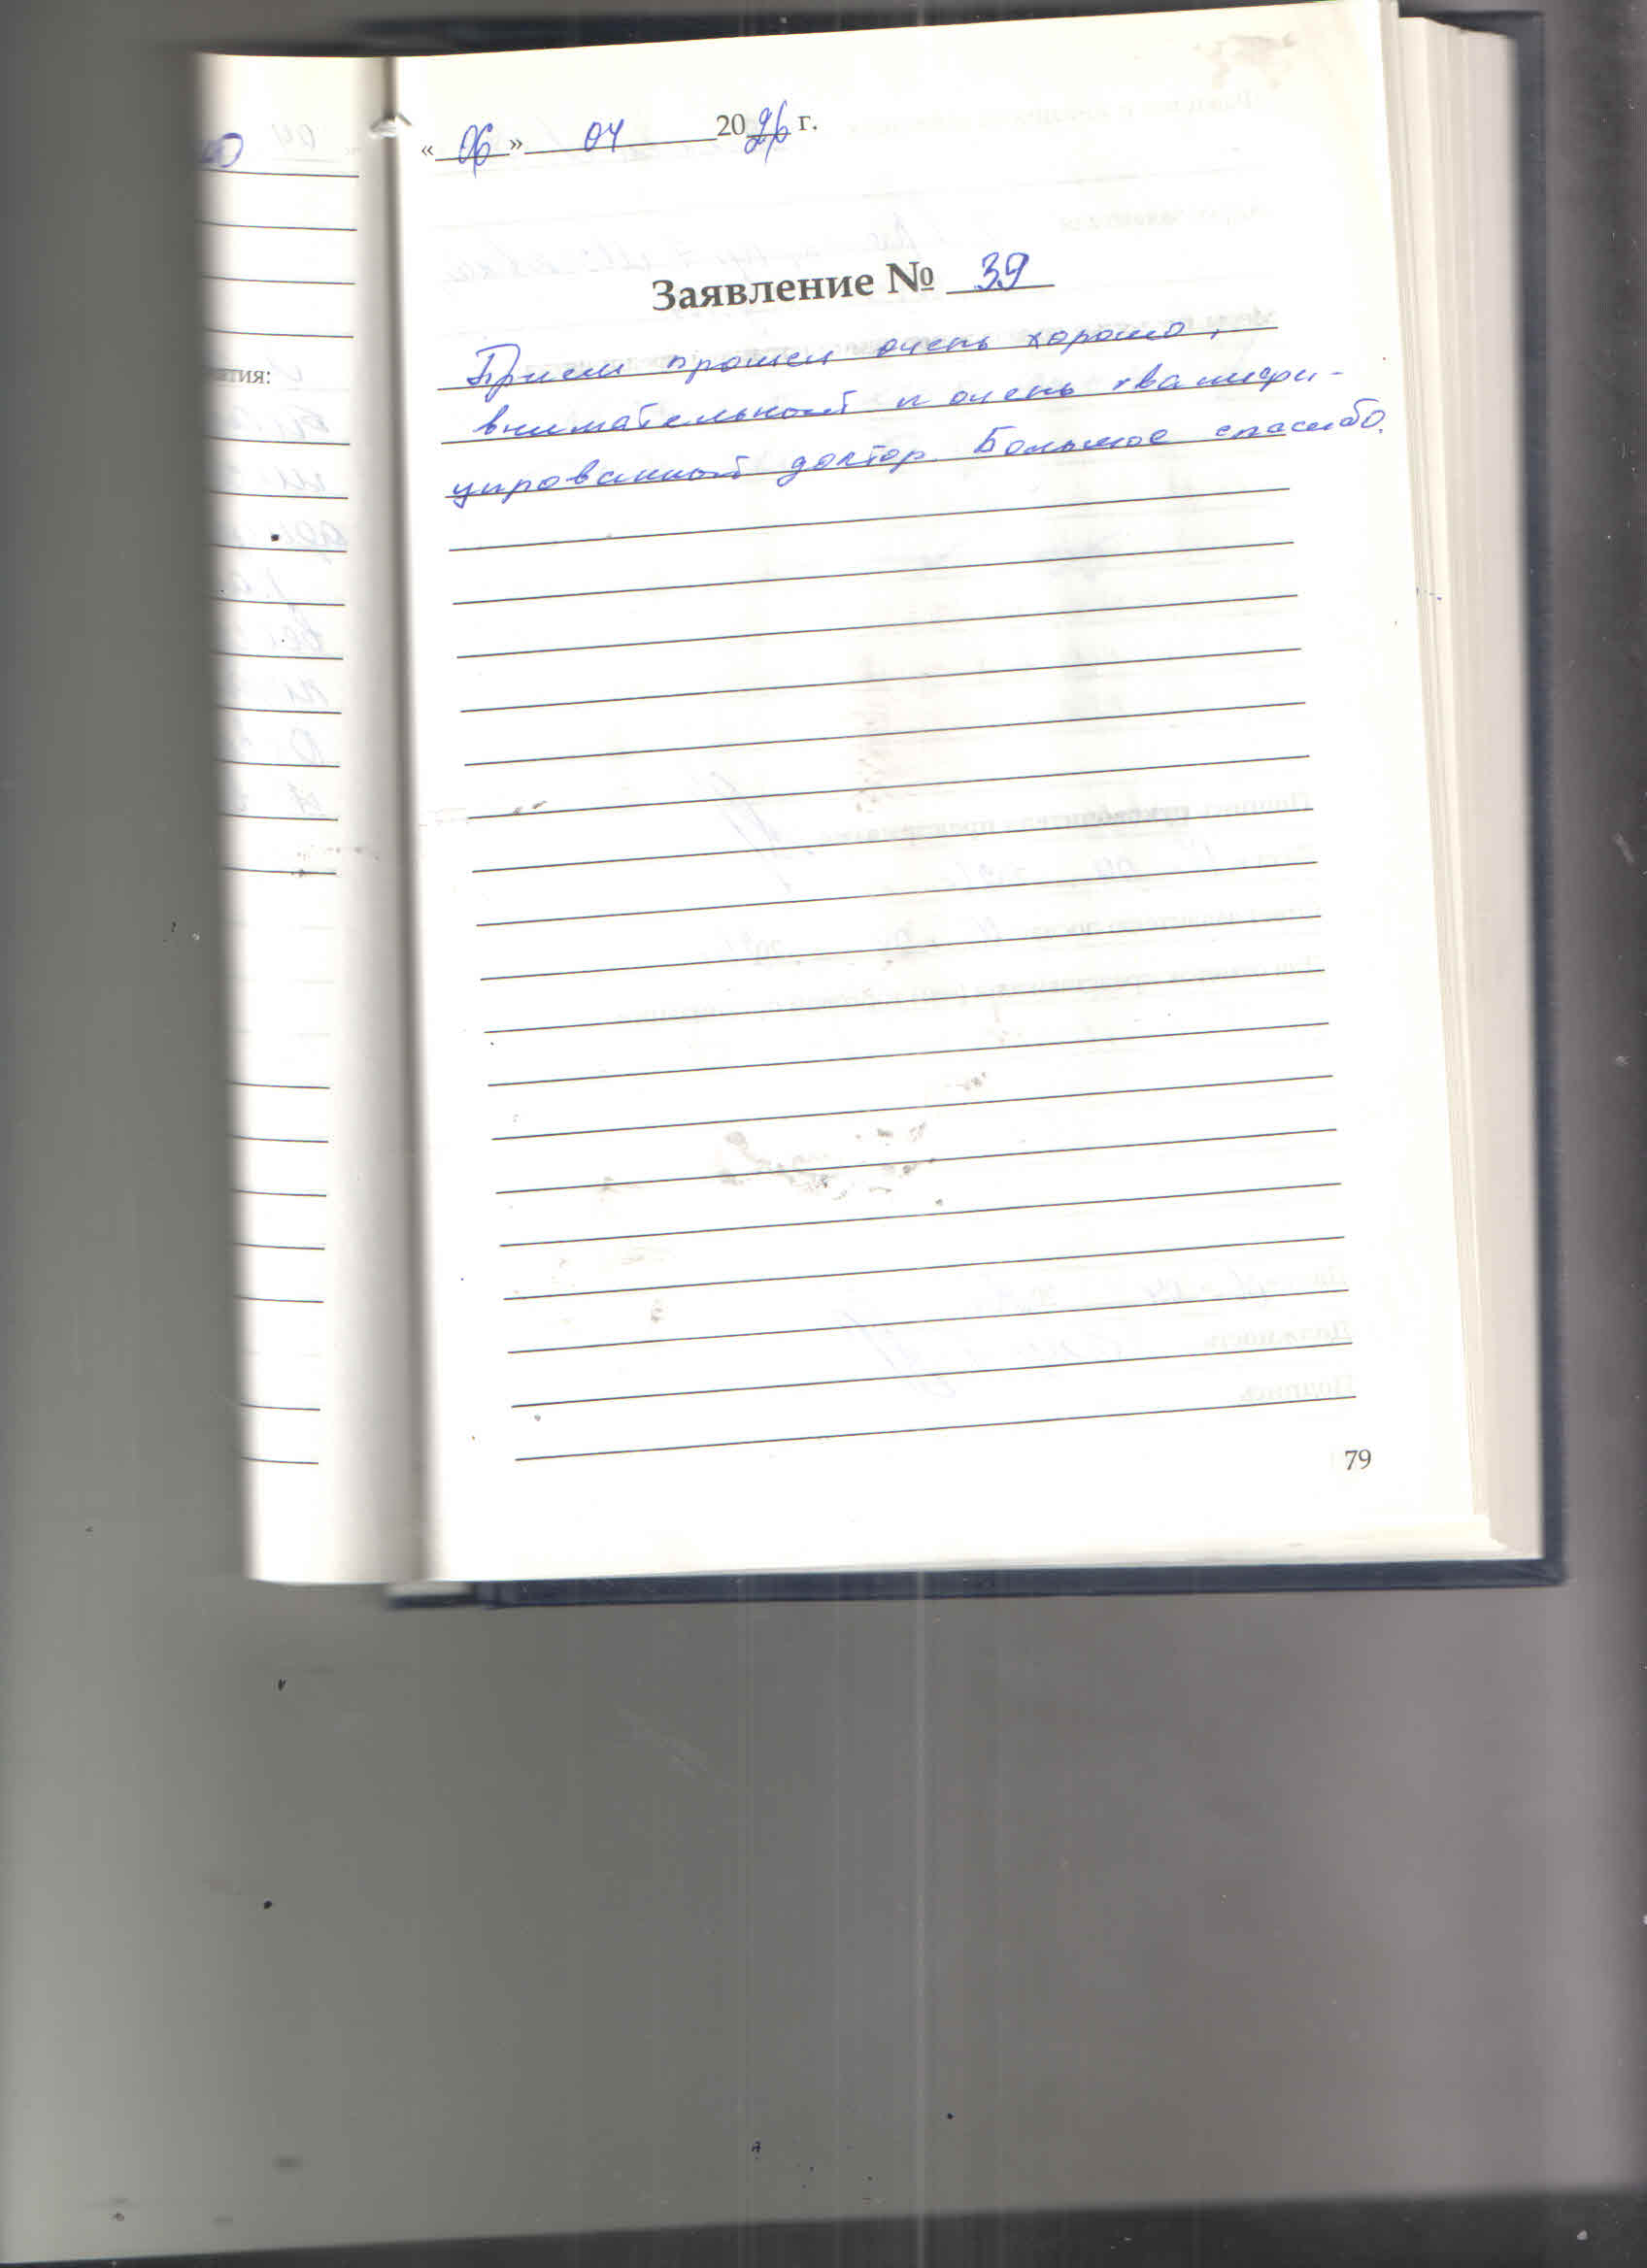 «06» 04 2026 г.
Заявление № 39
Прием прошел очень хорошо,
внимательный и очень квалифи-
цированный доктор. Большое спасибо.
тия:
79